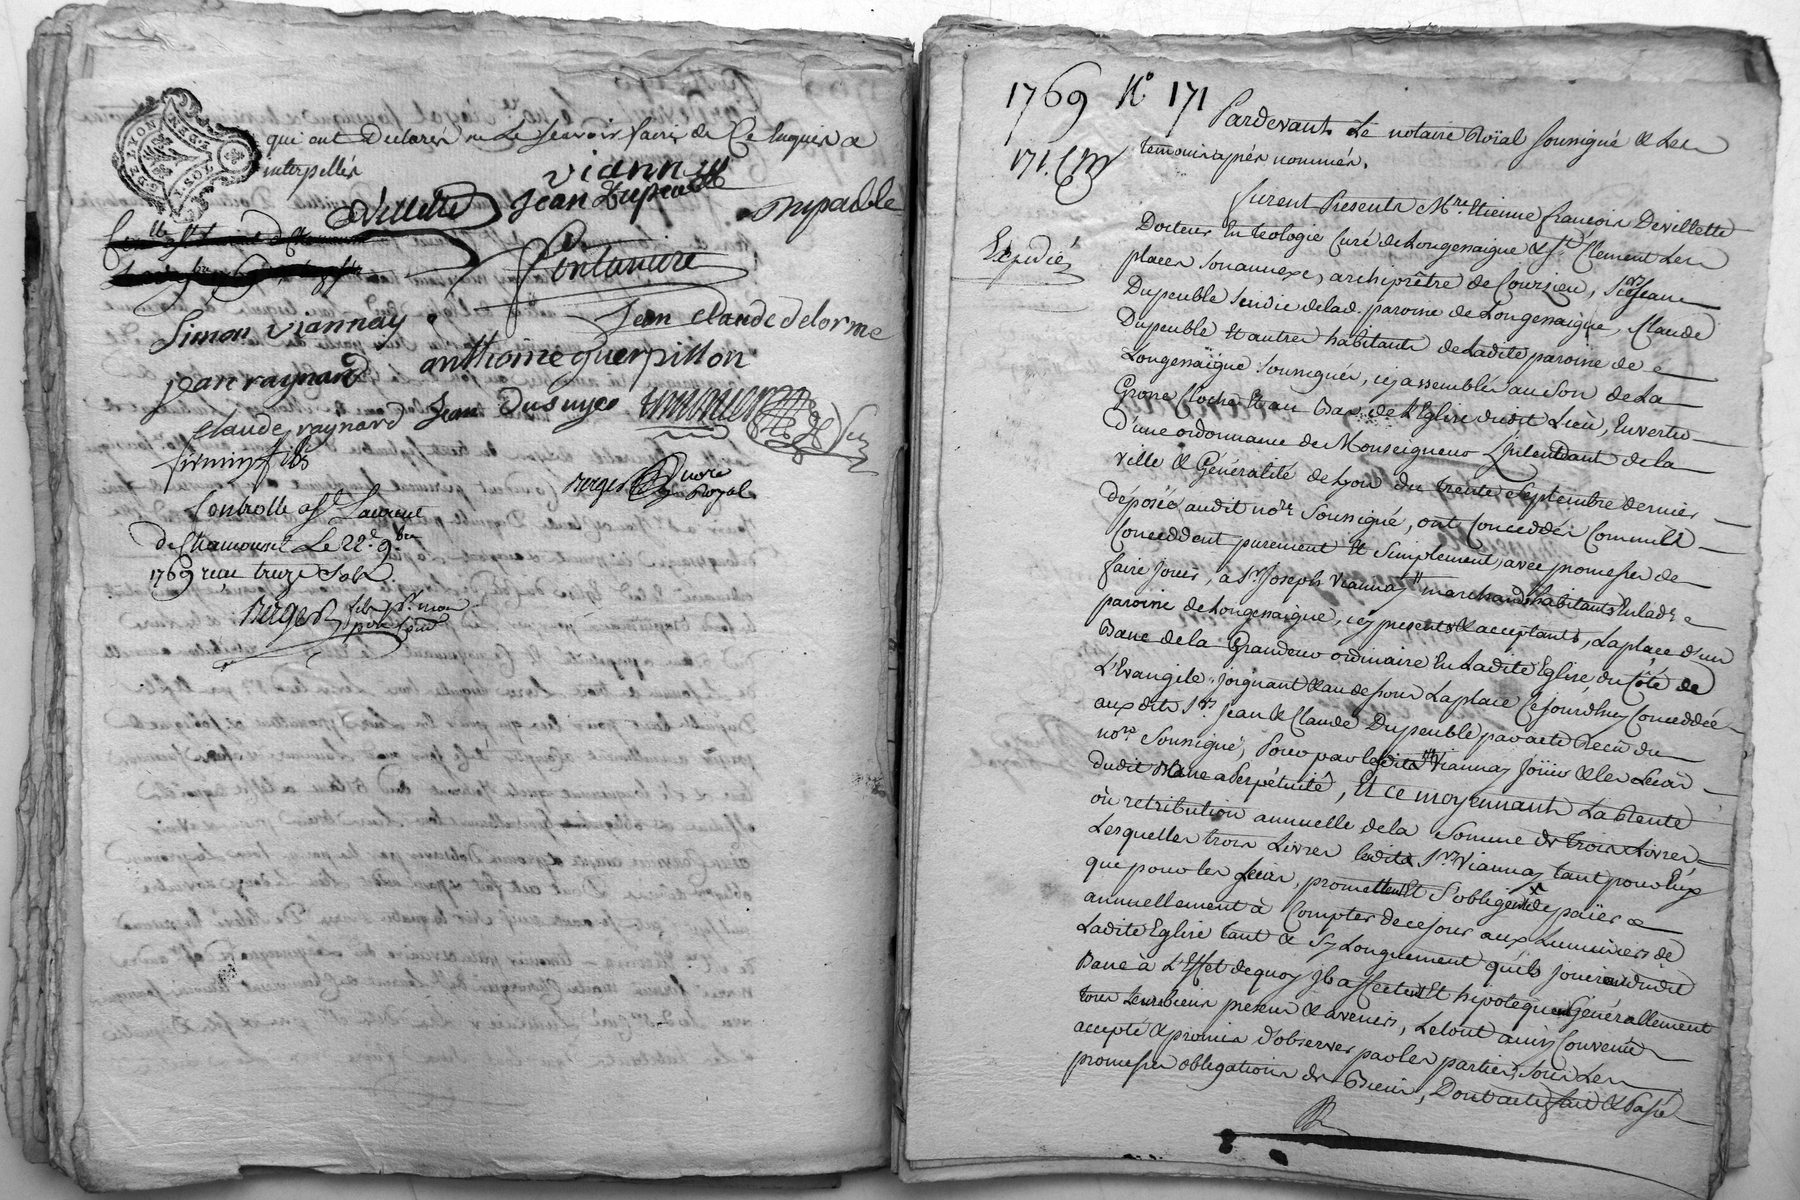 GEN. DE LYON
DEUX SOLS
qui ont Declarés ne Le scavoir faire de Ce Enquis &
interpellés
viannay
Devillette Jean Dupeuble
Dupeuble
Fontaniere
Jean claude delorme
Simon viannay
anthoine guerpillon
jean raynard
claude raynard Jean Dusuyet
firmin fils
Berger no.re Royal
Controllé a St Laurent
De Chamousset Le 22.e 9.bre
1769 reçu treize sols
Berger
1769 N.o 171
171. Cm
Pardevant Le notaire Roïal soussigné & Les
temoins après nommés.
furent Presents M.re Etienne françois Devillette
Docteur En teologie Curé de Longessaigne & St Clement Les
Expedié
places son annexe, archiprêtre de Courzieu, S.r Jean
Dupeuble sindic de lad. paroisse de Longessaigne, Claude
Dupeuble Et autres habitants de Ladite paroisse de
Longessaigne soussignés, icy assemblés au son de La
Grosse Cloche Et au Bas de L'Eglise dudit Lieu, En vertu
D'une ordonnance de Monseigneur L'intendant de la
ville & Généralité de Lyon du trente septembre dernier
déposée audit no.re soussigné, ont Conceddés Comme ils
Conceddent purement Et simplement avec promesse de
faire jouir, a S.r Joseph viannay marchands habitants En lad.e
paroisse de Longessaigne, icy presents & acceptants, La place d'un
Banc de la Grandeur ordinaire En Ladite Eglise du Côté de
L'Evangile, joignant & au dessous La place Cejourdhuy Conceddée
aux dits S.rs Jean & Claude Dupeuble par acte Recû du
no.re soussigné, Pour par lesdits viannay Joüir & les Leurs
dudit Banc a Perpétuité, Et ce moyennant La Rente
ou retribution annuelle de la somme de trois Livres
Lesquelles trois Livres lesdits S.rs viannay tant pour Eux
que pour les Leurs, promettent Et s'obligent de païer
annuellement à Compter de ce jour aux Luminiers de
Ladite Eglise tant & sy Longuement qu'ils jouiront dudit
Banc à L'Effet de quoy ils affectent Et hipotequent Générallement
tous Leurs biens présens & avenirs, Le tout ainsy Convenu
accepté & promis d'observer par les parties, sous Les
promesses obligations de Biens, Dont acte fait & Passé